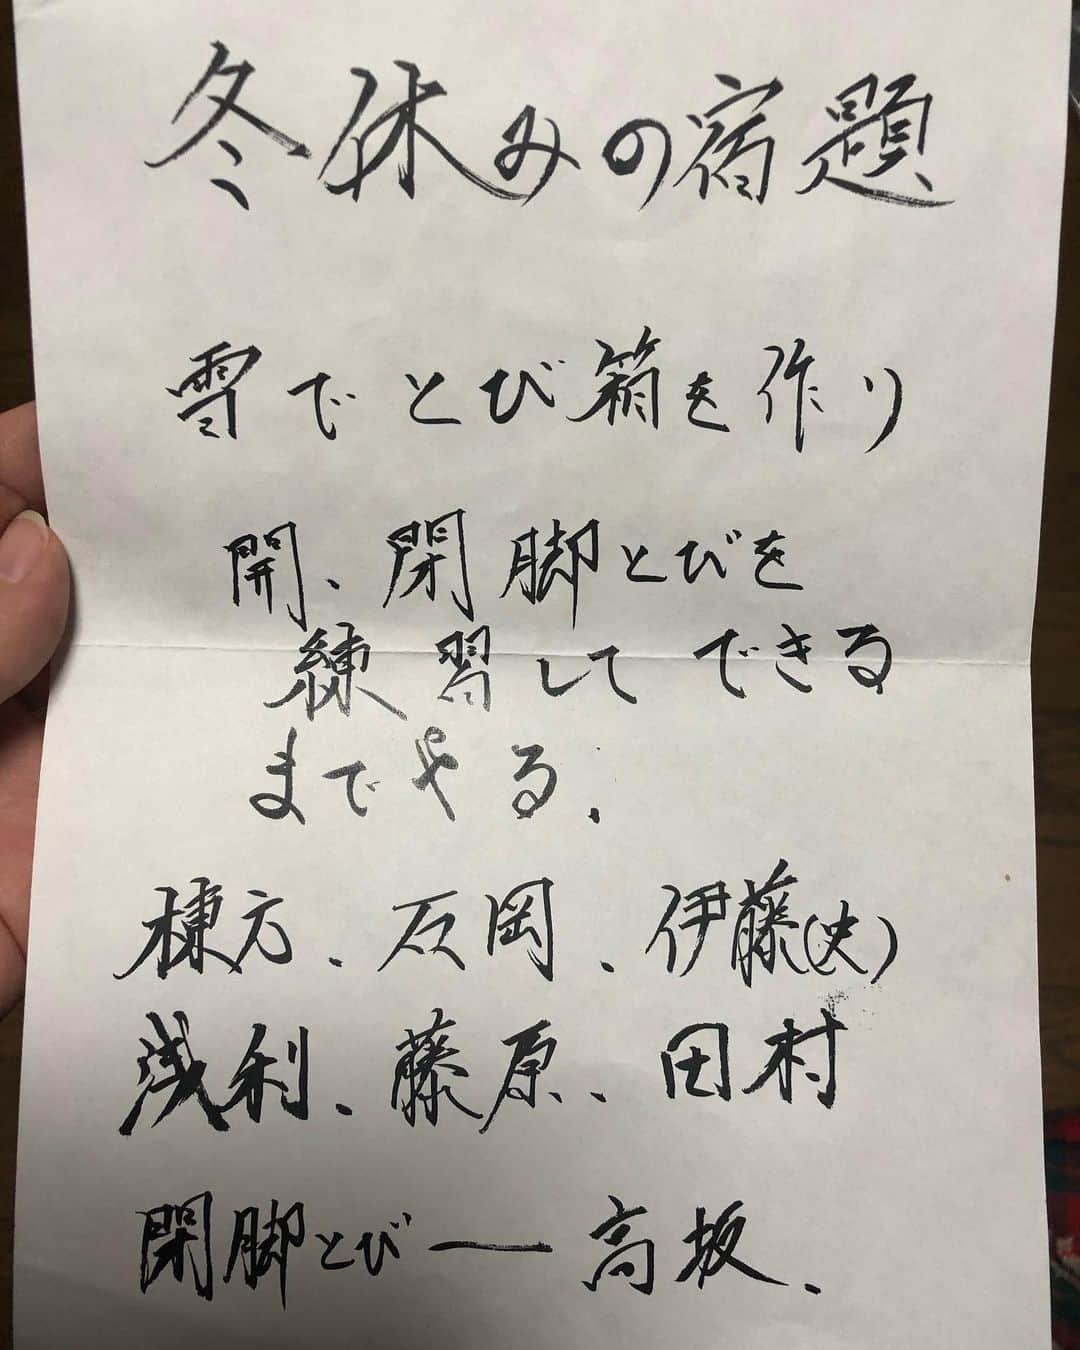 冬休みの宿題
雪でとび箱を作り
開、閉脚とびを
練習してできる
までやる、
棟方、石岡、伊藤(史)
浅利、藤原、田村
閉脚とび—高坂、